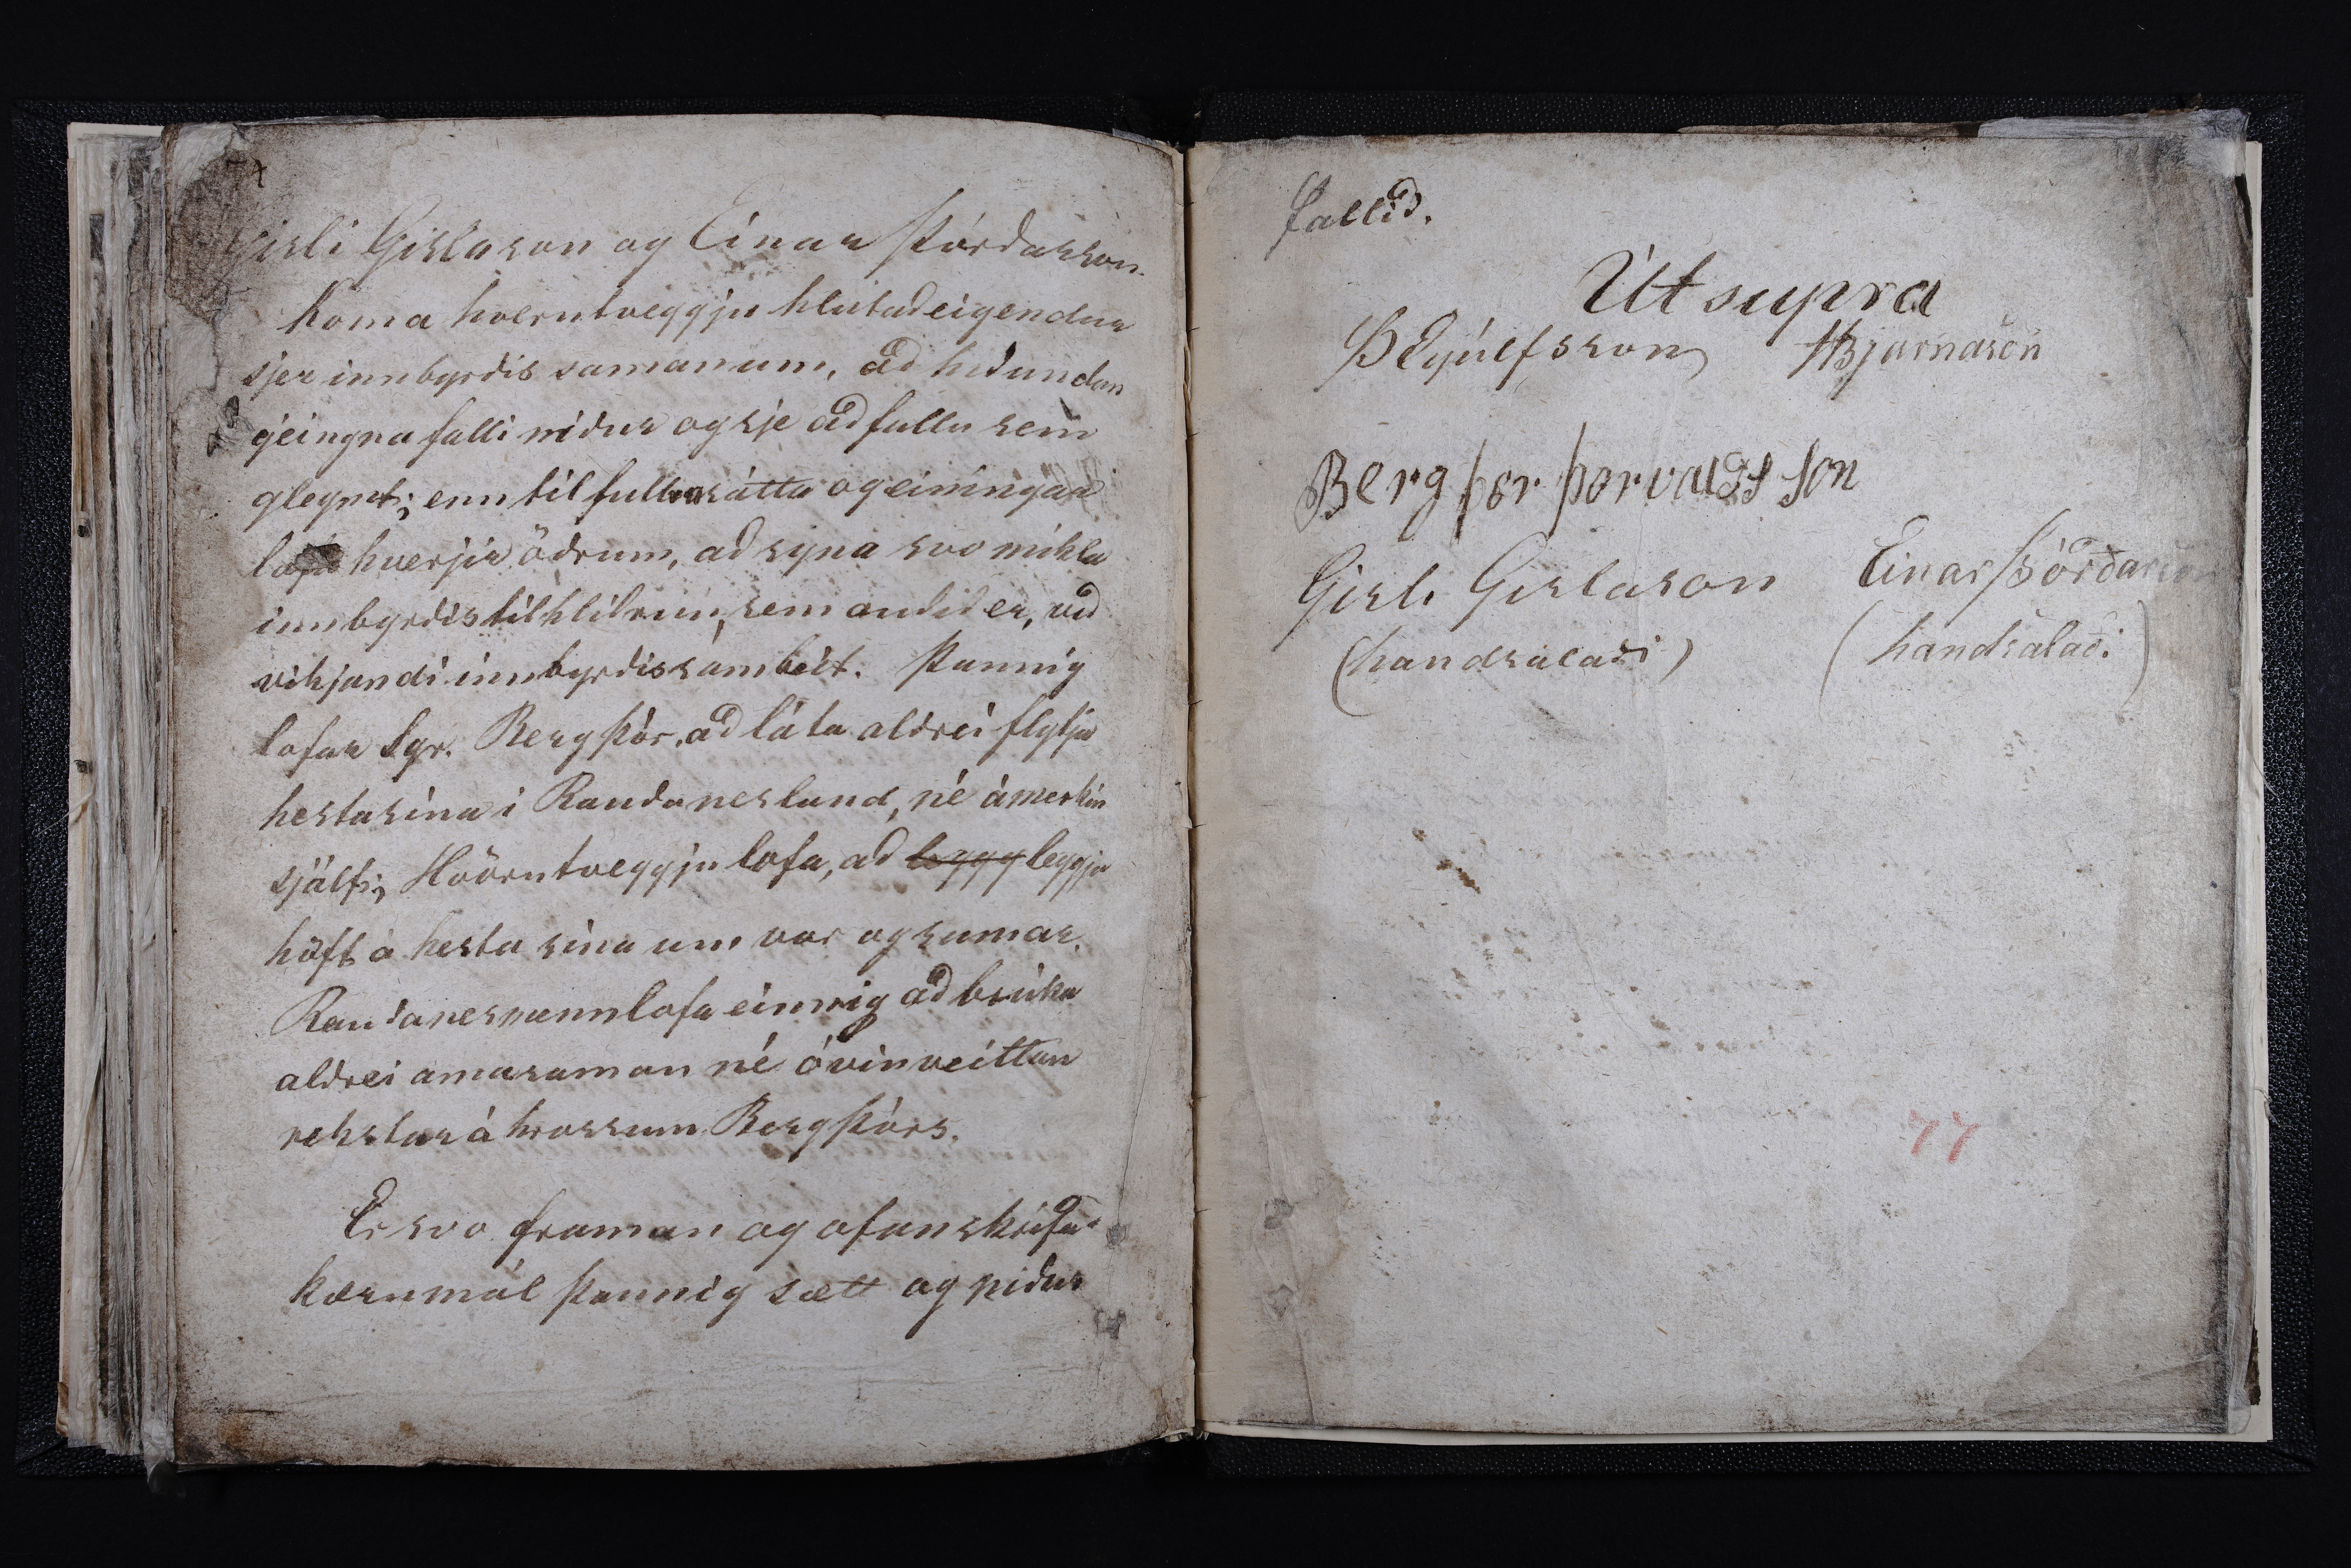 Gisli Gislason og Einar Þórdarson.
Koma hverutveggju hlutadeigendur
sjer innbyrdis samanum, ad hid undan
geingna falli nidur og sje ad fullu sem
gleymt; enn til fullra sátta og einingar
lofa hverjir ödrum, ad syna svo mikla
innbyrdis tilhlidrun, sem audid er, vid
vikjandi innbyrdis sambeit. Þannig
lofar Sgr. Bergþór, ad láta aldrei flytja
hesta sina i Raudanesland, né ámerkin
sjálf; Hvörutveggju lofa, ad leggg leggja
höft á hesta sina um vor og sumar.
Raudanesmenn lofa einnig ad brúka
aldrei amasaman né óvinveittan
rekstur á hrossum Bergþórs.
Er svo framan og ofanskrifad
kærumál þannig sætt og nidur
fallid.
Út supra
B Eyúlfsson HBjarnason
Bergþor þorvaldsson
Gisli Gislason Einar Þórðarson
(handsalaði) (handsalaði)
77